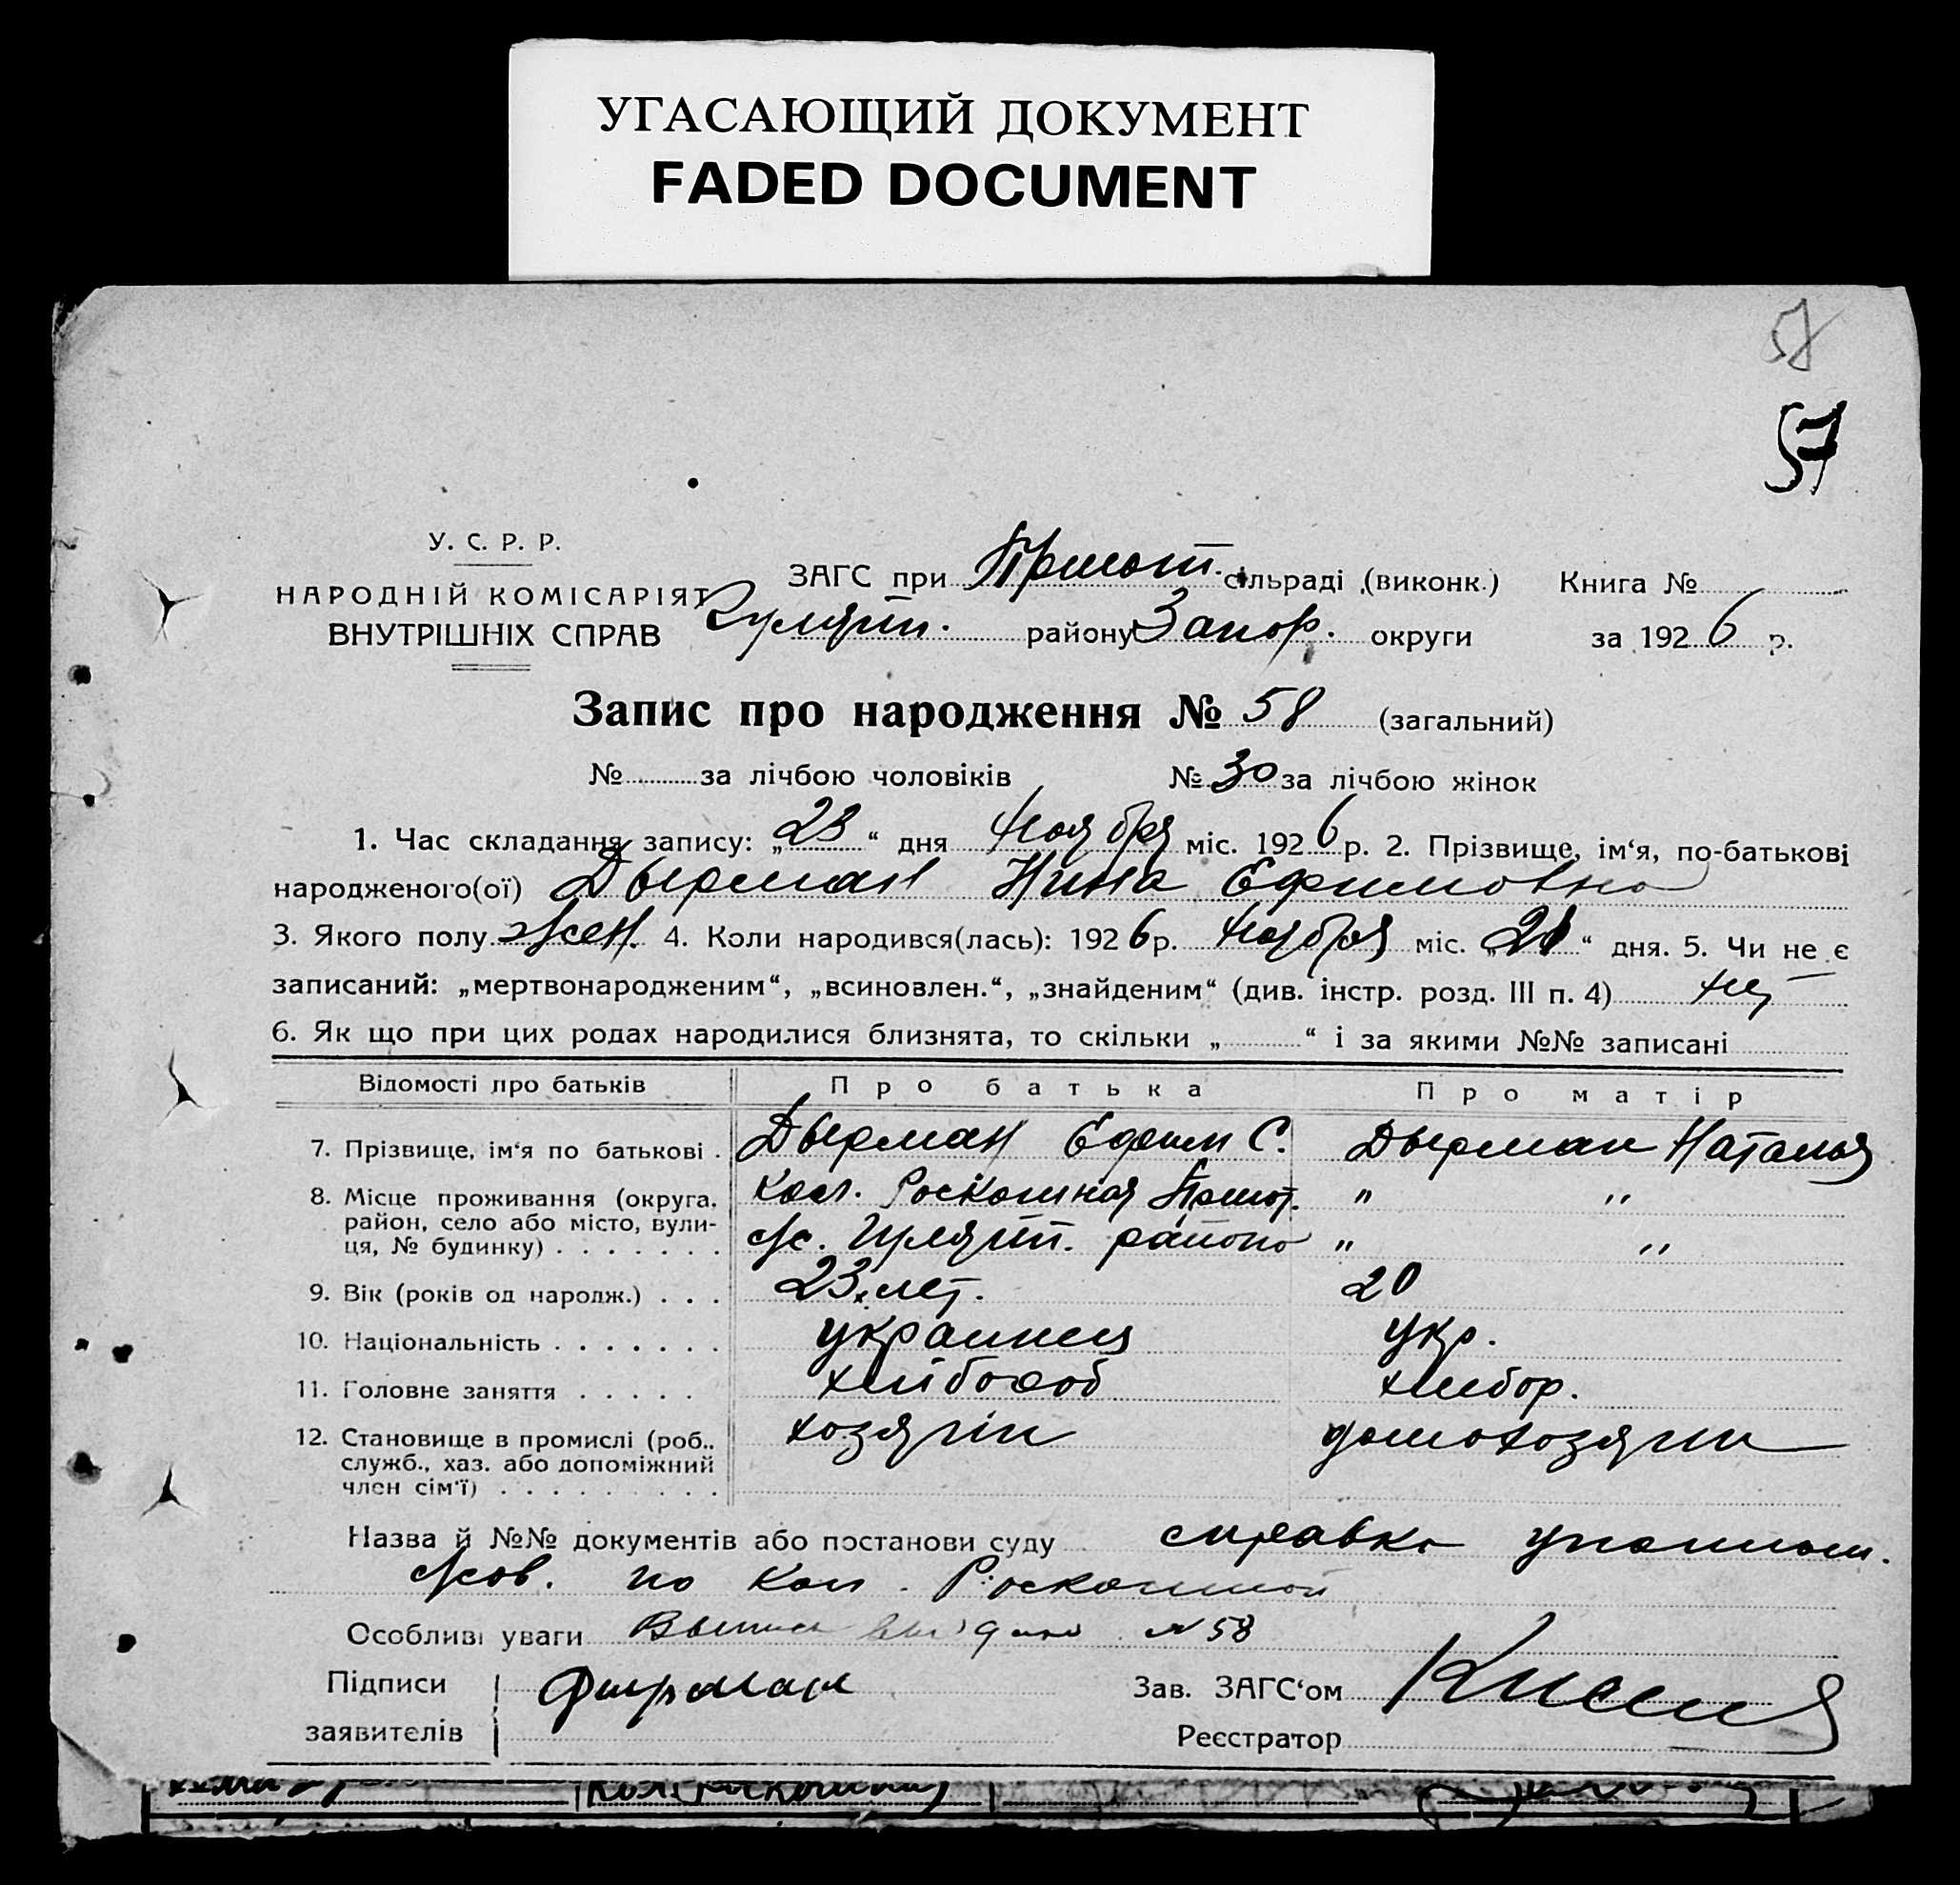 УГАСАЮЩИЙ ДОКУМЕНТ
FADED DOCUMENT
58
57
У. С. Р. Р.
НАРОДНІЙ КОМІСАРІЯТ
ВНУТРІШНІХ СПРАВ
ЗАГС при сільраді (виконк.) Книга №
Гуляйп. району Запор. округи за 1926 р.
Запис про народження № 58 (загальний)
№ за лічбою чоловіків № 30 за лічбою жінок
1. Час складання запису: „23“ дня Ноября міс. 1926 р. 2. Прізвище, ім‘я, по-батькові
народженого(ої) Дырман Нина Ефимовна
3. Якого полу жен. 4. Коли народився(лась): 1926 р. Ноября міс. „21“ дня. 5. Чи не є
записаний: „мертвонародженим“, „всиновлен.“, „знайденим“ (див. інстр. розд. III п. 4) нет
6. Як що при цих родах народилися близнята, то скільки „ “ і за якими №№ записані
Відомості про батьків Про батька Про матір
7. Прізвище, ім‘я по батькові . Дырман Ефим С. Дырман Наталья
8. Місце проживання (округа, Кол. Роскошная " "
район, село або місто, вули-
ця, № будинку) . . . . . . . с/с. Гуляйп. района " "
9. Вік (років од народж.) . . . 23 лет. 20
10. Національність . . . . . . . украинец укр.
11. Головне заняття . . . . . хлібороб хлебор.
12. Становище в промислі (роб., хозяин домохозяин
служб., хаз. або допоміжний
член сім‘ї) . . . . . . . . .
Назва й №№ документів або постанови суду справка уполном.
по кол. Роскошной
Особливі уваги Выпись выдана № 58
Підписи Дырман Зав. ЗАГС‘ом
заявителів Реєстратор